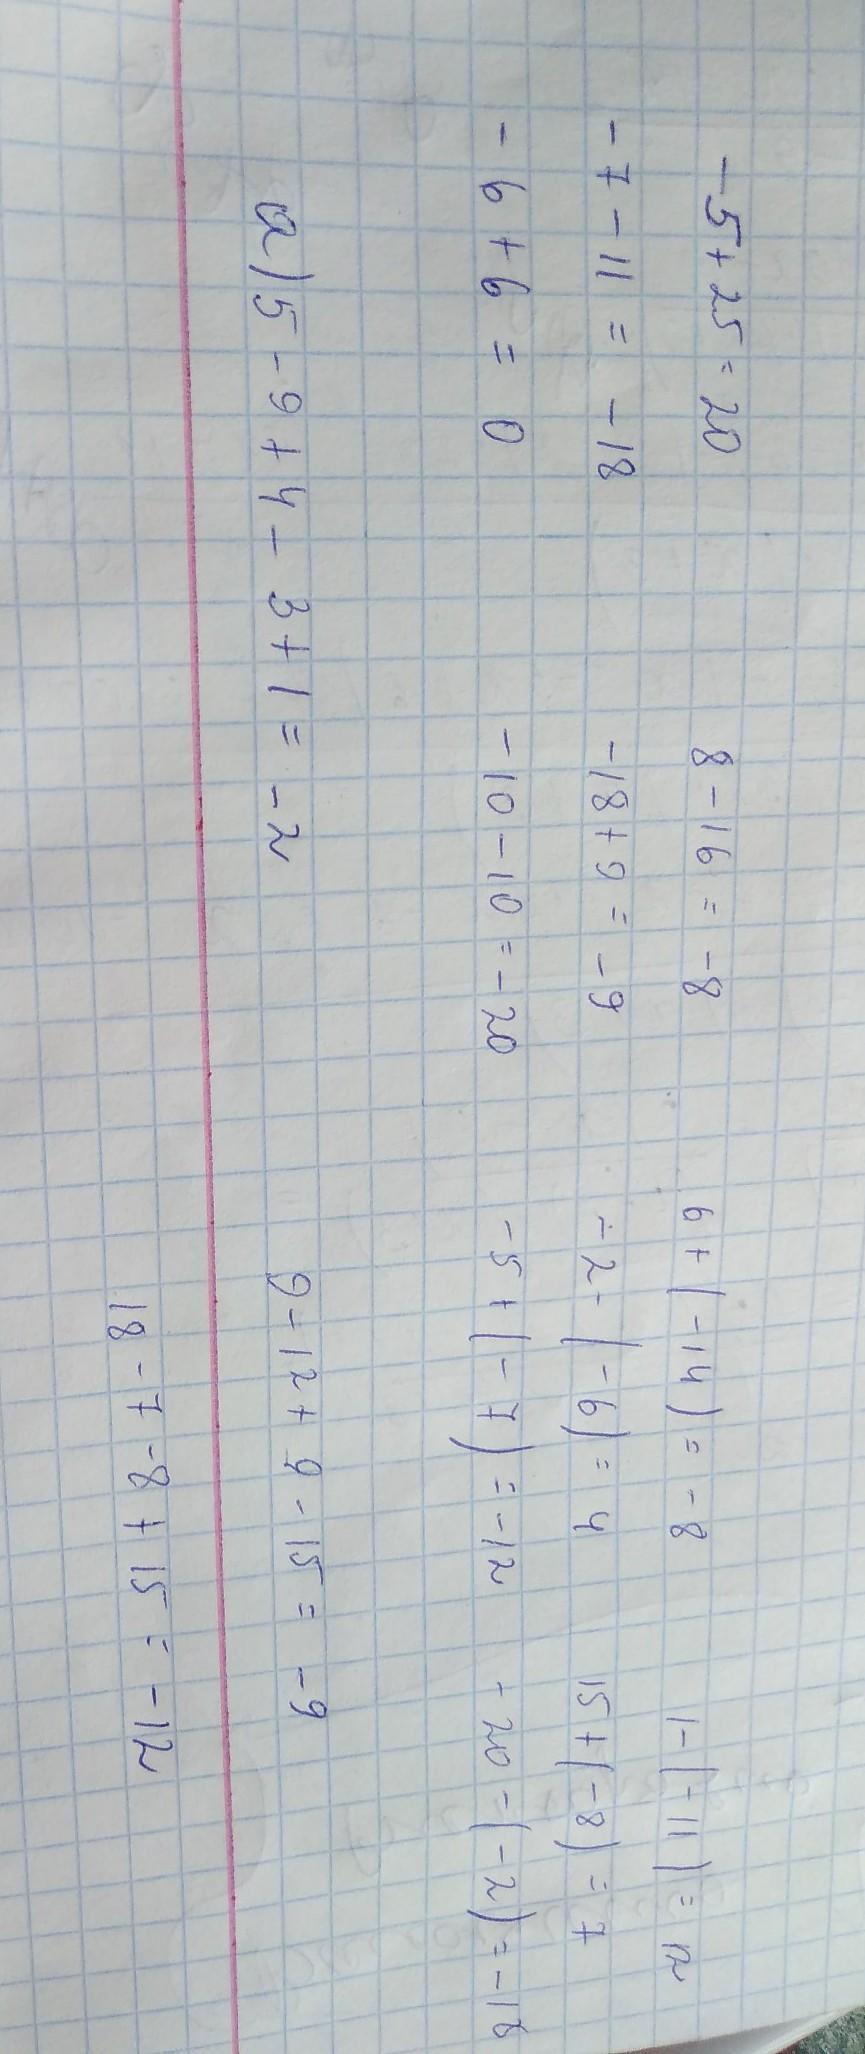 -5+25=20 8-16=-8 6+(-14)=-8 1-(-11)=12
-7-11=-18 -18+9=-9 -2-(-6)=4 15+(-8)=7
-6+6=0 -10-10=-20 -5+(-7)=-12 -20-(-2)=-18
а) 5-9+4-3+1=-2 9-12+9-15=-9
18-7-8+15=-12